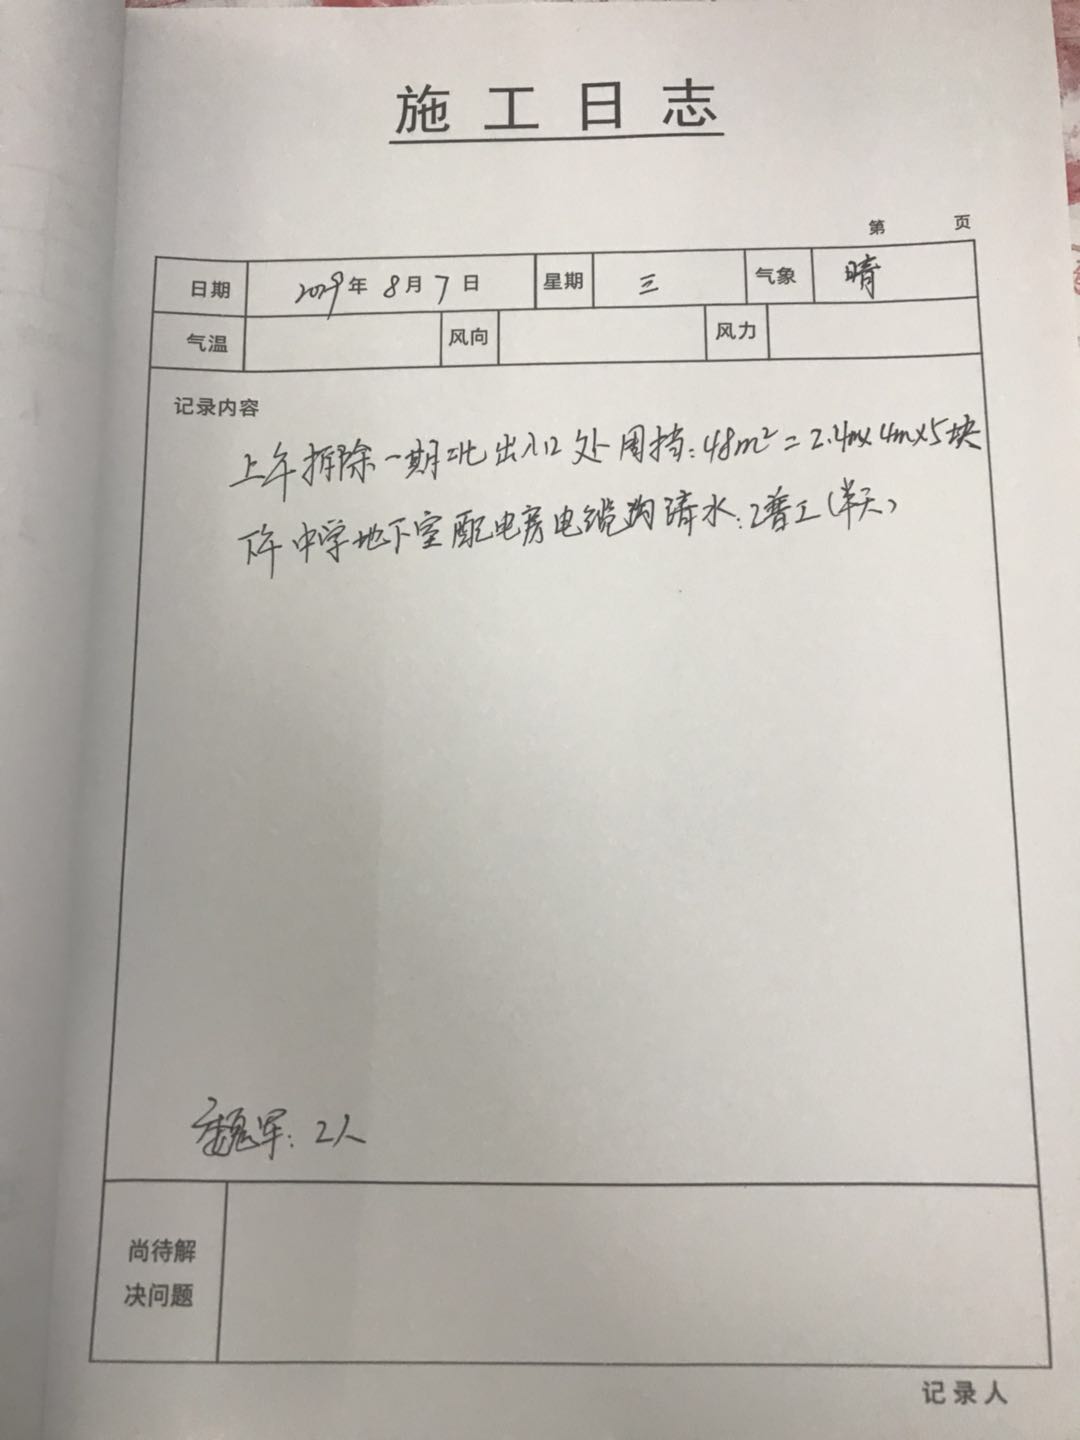 施工日志
第 页
日期 2019年8月7日 星期 三 气象 晴
气温 风向 风力
记录内容
上午拆除一期北出入口处围挡:48m²=2.4m×4m×5块
下午中学地下室配电房电缆沟清水:2普工(半天)
魏军:2人
尚待解
决问题
记录人